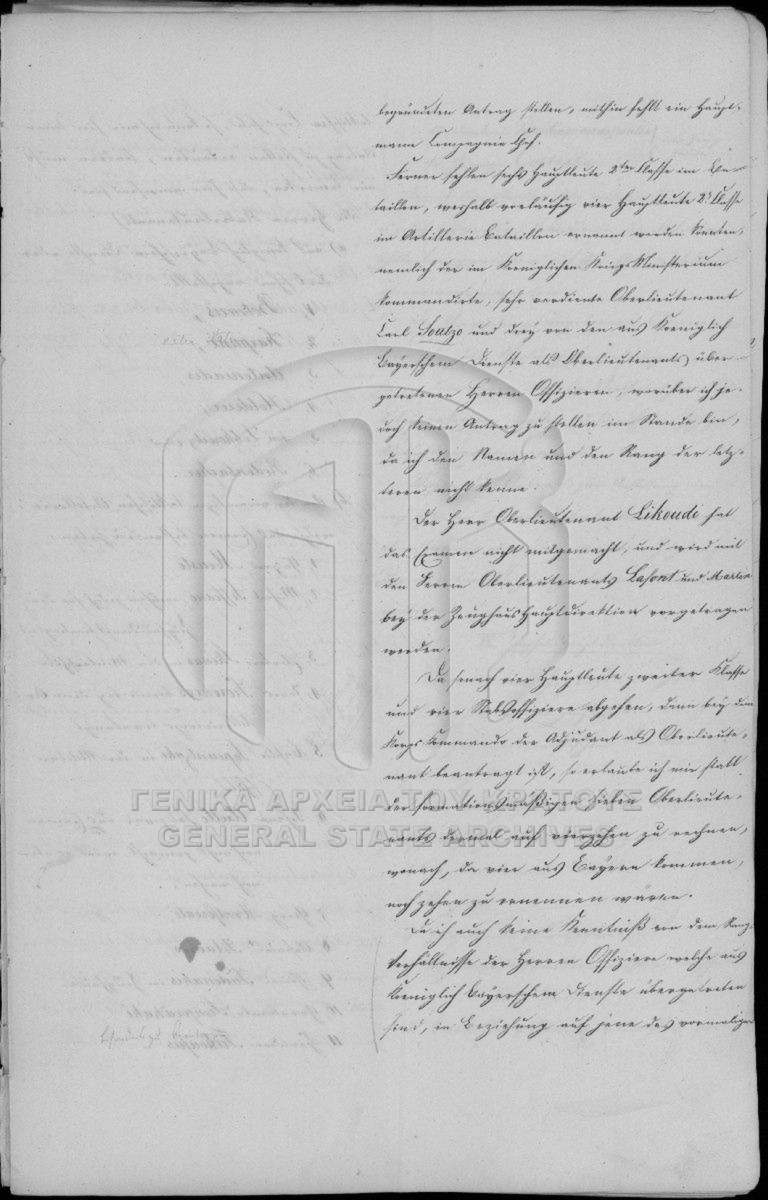 begründeten Antrag stellen, mithin fehlt ein Haupt-
mann Compagnie Chef.
Ferner fehlen sechs Hauptleute 2ter Classe im Ba-
taillon, weshalb vorläufig vier Hauptleute 2r Classe
im Artillerie Bataillon ernannt werden könnten,
nemlich der im Koeniglichen Kriegs Ministerium
kommandirte, sehr verdiente Oberlieutenant
Carl Soutzo und drey von den aus Koeniglich
Bayerschem Dienste als Oberlieutenants über-
getretenen Herren Offizieren, worüber ich je-
doch keinen Antrag zu stellen im Stande bin,
da ich den Namen und den Rang der letz-
teren nicht kenne.
Der Herr Oberlieutenant Likoudi hat
das Examen nicht mitgemacht, und wird mit
den Herren Oberlieutenants Lafont und Martin
bey der Zeughaus Hauptdirektion vorgetragen
werden.
Da sonach vier Hauptleute zweiter Classe
und vier Stabsoffiziere abgehen, dann bey dem
Korps Kommando der Adjudant als Oberlieute-
nant beantragt ist, so erlaube ich mir statt
der formationsmäßigen sieben Oberlieute-
nants dermal auf vierzehen zu rechnen,
wonach, da vier aus Bayern kommen,
noch zehen zu ernennen wären.
Da ich auch keine Kenntniß von dem Rang-
Verhältnisse der Herren Offiziere welche aus
Koeniglich Bayerschem Dienste übergetreten
sind, in Beziehung auf jene des vormaligen
ΓΕΝΙΚΑ ΑΡΧΕΙΑ ΤΟΥ ΚΡΑΤΟΥΣ
GENERAL STATE ARCHIVES